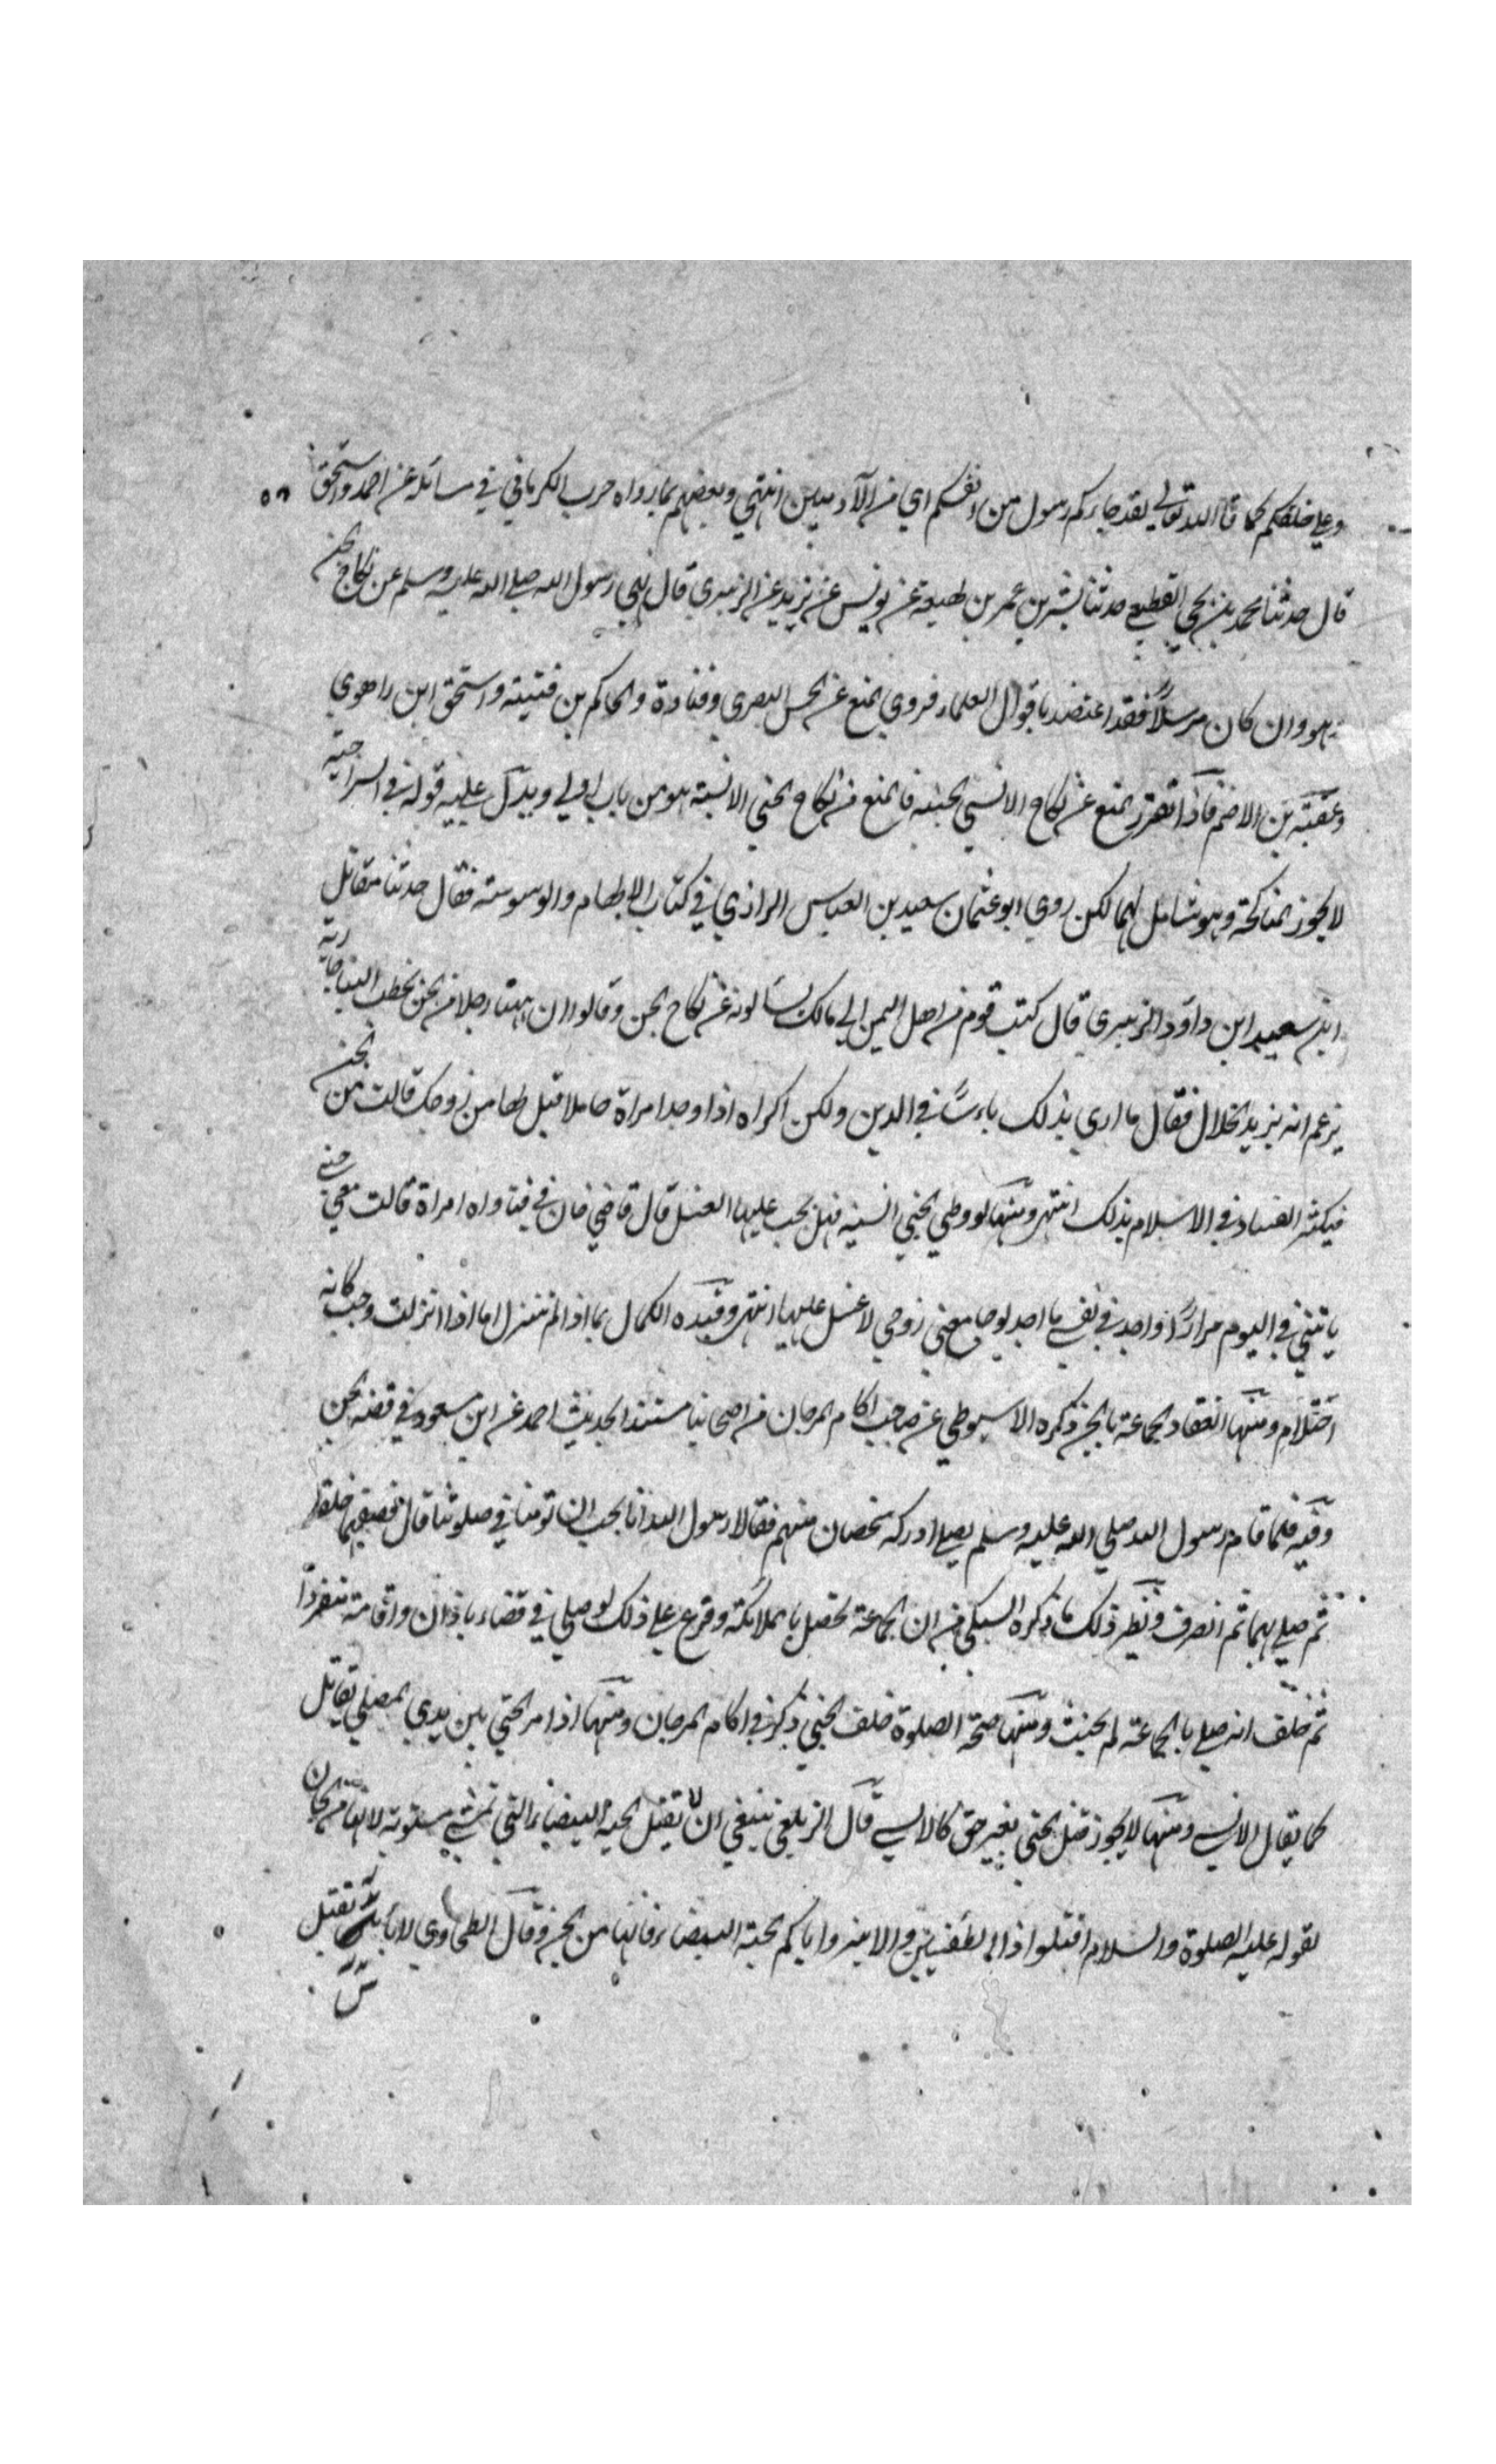 وعلي خلقكم كما قال الله تعالي لقد جاءكم رسول من انفسكم اي من الآدميين انتهي وبعضهم بما رواه حرب الكرماني في مسائله عن احمد واسحق
قال حدثنا محمد بن يحيي القطيعي حدثنا بشر بن عمر بن لهيعة عن يونس عن يزيد عن الزهري قال نهي رسول الله صلي الله عليه وسلم عن نكاح الجن
وهو وان كان مرسلاً فقد اعتضد باقوال العلماء فروي المنع عن الحسن البصري وقتادة والحاكم بن قتيبة واسحق ابن راهوي
وعقبة بن الاصم فاذا تقرر المنع عن نكاح الانسي الجنية فالمنع من نكاح الجني الانسية هو من باب اولي ويدل عليه قوله في السراجية
لا يجوز المناكحة وهو شامل لهما لكن روي ابو عثمان سعيد بن العباس الرازي في كتاب الالهام والوسوسة فقال حدثنا مقاتل
ابن سعيد ابن داود الزبيري قال كتب قوم من اهل اليمن الي مالك يسألونه عن نكاح الجن وقالوا ان هنا رجلا من الجن يخطب الينا جارية
يزعم انه يريد الحلال فقال ما اري بذلك باءسًا في الدين ولكن اكراه اذا وجد امراة حاملا قيل لها من زوجك قالت من الجن
فيكثر الفساد في الاسلام بذلك انتهي ومنها لو وطي الجني انسية فهل يجب عليها الغسل قال قاضي خان في فتاواه امراة قالت معي جني
ياتيني في اليوم مرارًا واجد في نفسي ما اجد لو جامعني زوجي لا غسل عليها انتهي وقيده الكمال بما اذا لم تنزل اما اذا انزلت وجب كانه
احتلام ومنها انعقاد الجماعة بالجن ذكره الاسيوطي عن صاحب اكام المرجان من اصحابنا مستندا لحديث احمد عن ابن مسعود في قصة الجن
وفيه فلما قام رسول الله صلي الله عليه وسلم يصلي ادركه شخصان منهم فقالا رسول الله انا نحب ان تؤمنا في صلوتنا قال فصفهما خلفه
ثم صلي بهما ثم انصرف ونظير ذلك ما ذكره السبكي من ان الجماعة تحصل بالملائكة وفرع علي ذلك لو صلي في فضاء باذان واقامة منفردًا
ثم حلف انه صلي بالجماعة لم يحنث ومنها صحة الصلوة خلف الجني ذكره في اكام المرجان ومنها اذا مر الجني بين يدي المصلي يقاتل
كما يقاتل الانسي ومنها لا يجوز قتل الجني بغير حق كالانسي قال الزيلعي ينبغي ان لا يقتل الحية البيضاء التي تمشي مستوية لانها من الجان
لقوله عليه الصلوة والسلام اقتلوا ذا الطفيتين والابتر واياكم الحية البيضاء فانها من الجن وقال الطحاوي لا باس بقتل